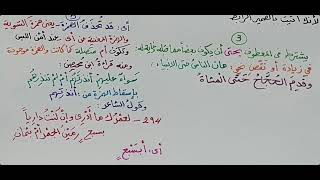 لأنك أتيت بالضمير الرابط
3
يشترط في المعطوف بحتى أن يكون بعضا مما قبله وغاية له
في زيادة أو نقص نحو: مات الناس حتى الأنبياء
وقدم الحجاج حتى المشاة
أي: قد تحذف الهمزة - يعني همزة التسوية
والهمزة المغنية عن أي عند أمن اللبس
وتكون أم متصلة كما كانت والهمزة موجودة
ومنه قراءة ابن محيصن
سواء عليهم أنذرتهم أم لم تنذرهم
بإسقاط الهمزة من: أنذرتهم
وقول الشاعر:
294- لعمرك ما أدري وإن كنت داريا
بسبع رمين الجمر أم بثمان
أي: أبسبع